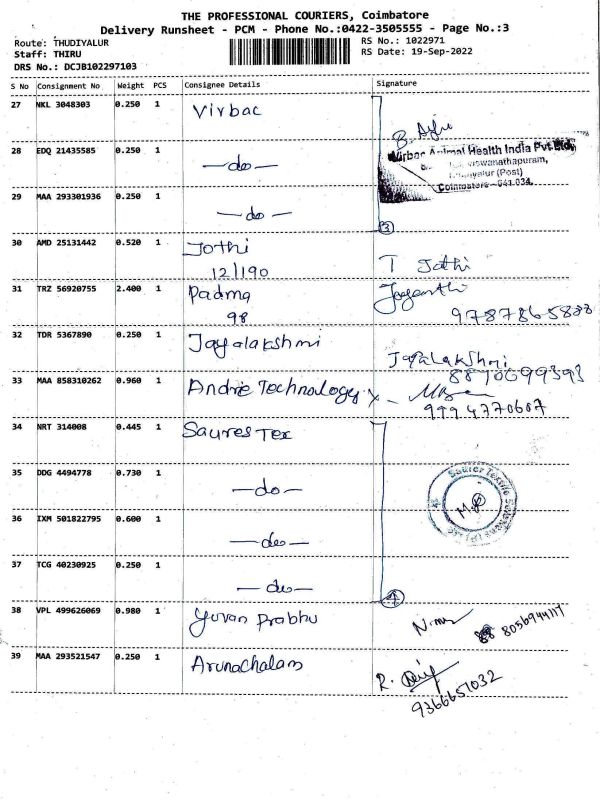 THE PROFESSIONAL COURIERS, Coimbatore
Delivery Runsheet - PCM - Phone No.:0422-3505555 - Page No.:3
Route: THUDIYALUR RS No.: 1022971
Staff: THIRU RS Date: 19-Sep-2022
DRS No.: DCJB102297103
S No Consignment No Weight PCS Consignee Details Signature
27 NKL 3048303 0.250 1 Virbac
28 EDQ 21435585 0.250 1 —do—
Virbac Animal Health India Pvt Ltd,
viswanathapuram,
(Post)
Coimbatore - 641 034.
29 MAA 293301936 0.250 1 —do—
3
30 AMD 25131442 0.520 1 Jothi T Jothi
12/190
31 TRZ 56920755 2.400 1 Padma Jayanthi
98 9787865888
32 TDR 5367890 0.250 1 Jayalakshmi Jayalakshmi
8870699393
33 MAA 858310262 0.960 1 Andrie Technology x
9994770607
34 NRT 314008 0.445 1 Saures Tex
35 DDG 4494778 0.730 1 —do—
Saurer Textile
36 IXM 501822795 0.600 1 —do—
37 TCG 40230925 0.250 1 —do—
4
38 VPL 499626069 0.980 1 Yuvan Prabhu
8056944117
39 MAA 293521547 0.250 1 Arunachalam R.
9366651032